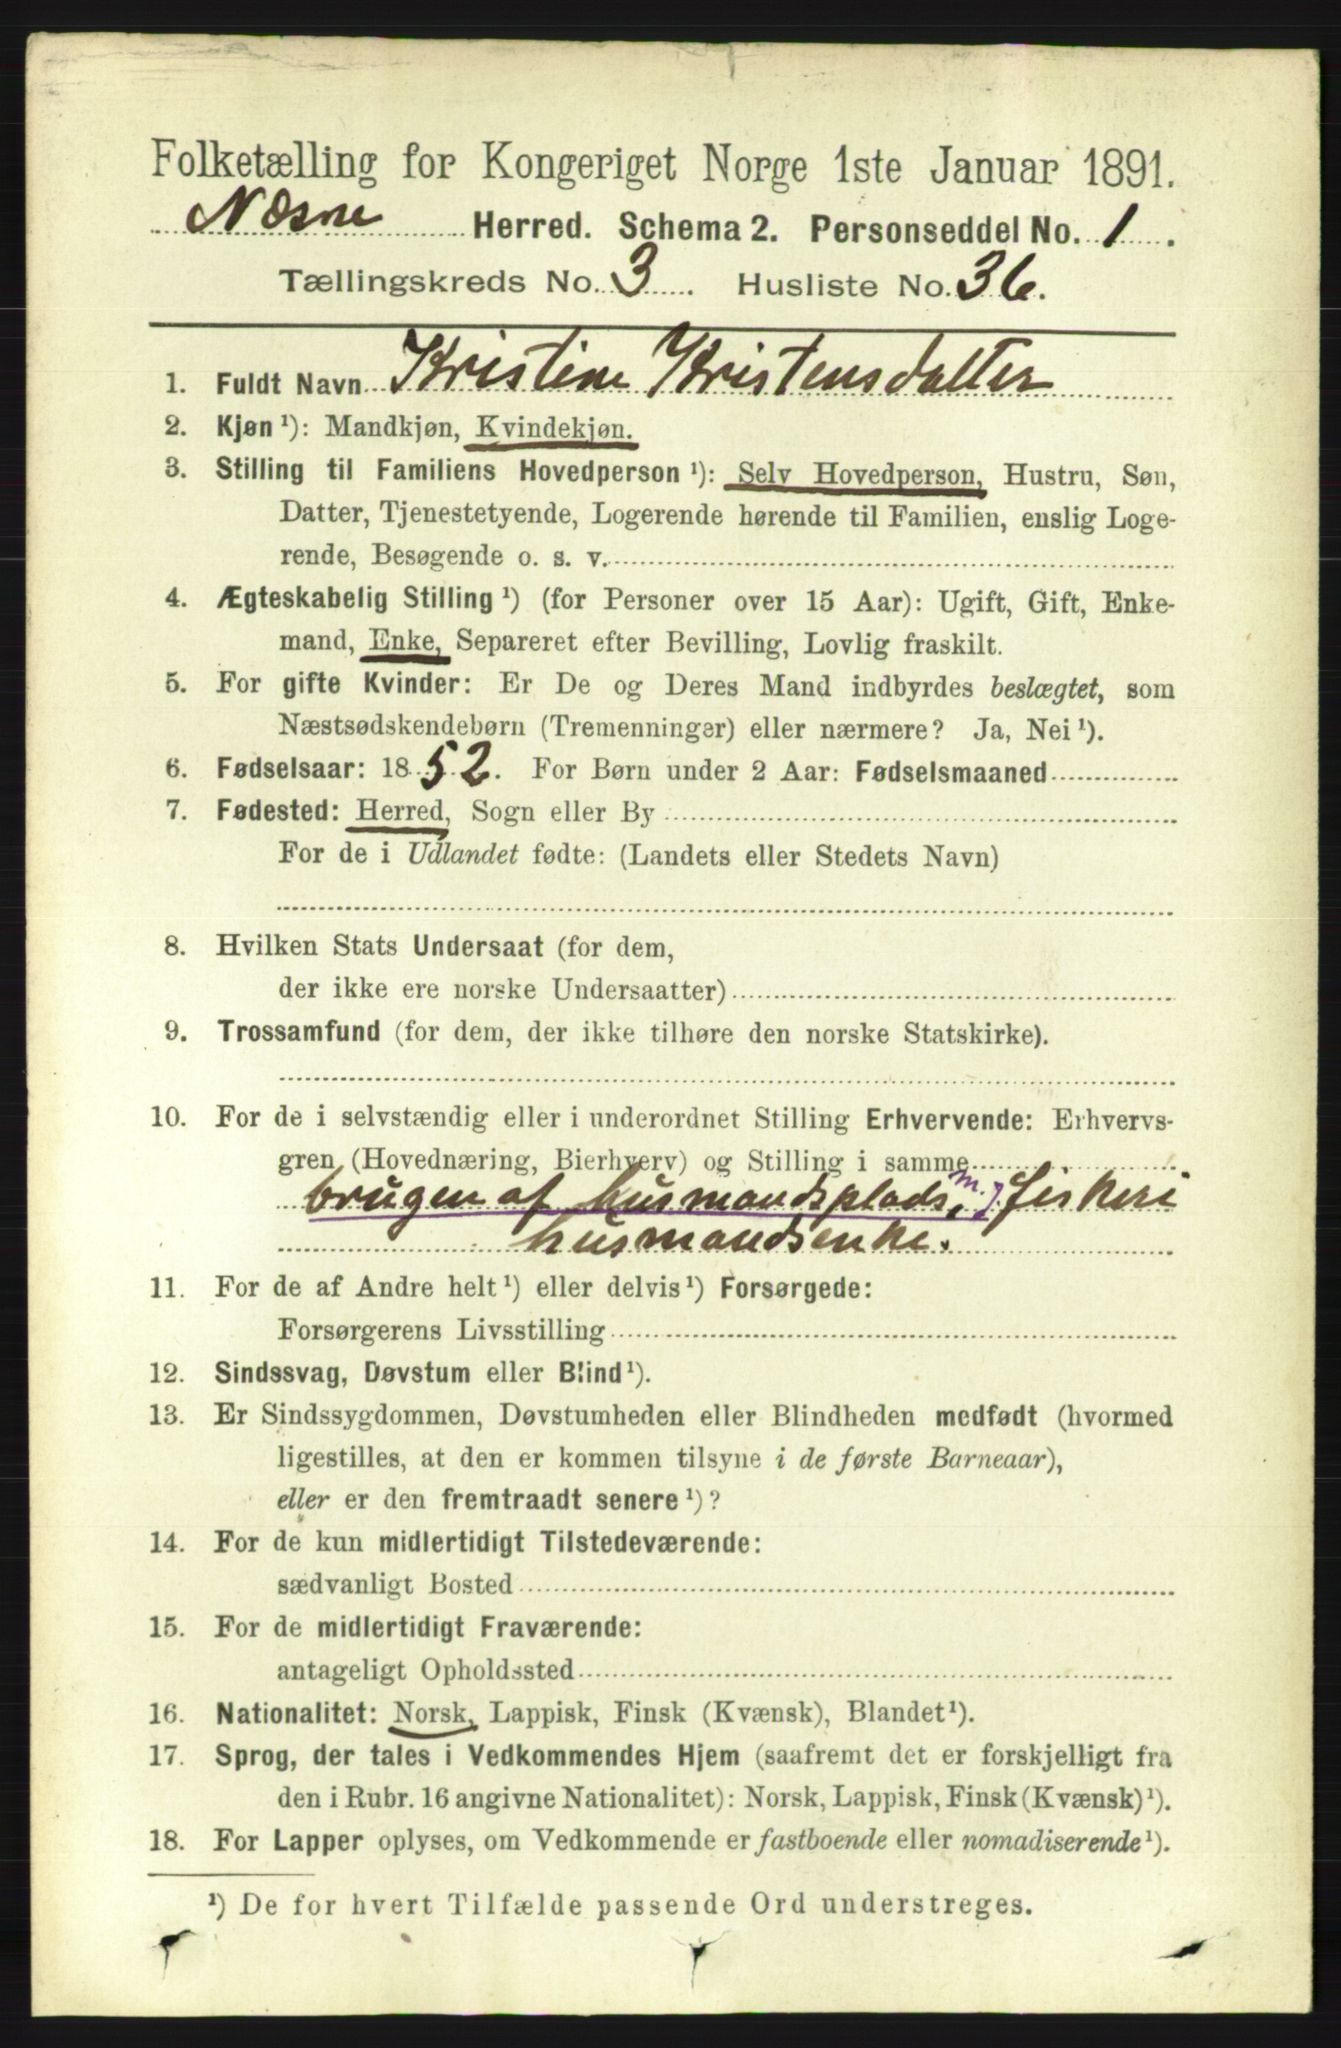 Folketælling for Kongeriget Norge 1ste Januar 1891.
Næsne Herred. Schema 2. Personseddel No. 1.
Tællingskreds No. 3. Husliste No. 36.
1. Fuldt Navn Kristine Kristensdatter
2. Kjøn ¹): Mandkjøn, Kvindekjøn.
3. Stilling til Familiens Hovedperson ¹): Selv Hovedperson, Hustru, Søn,
Datter, Tjenestetyende, Logerende hørende til Familien, enslig Loge-
rende, Besøgende o. s. v.
4. Ægteskabelig Stilling ¹) (for Personer over 15 Aar): Ugift, Gift, Enke-
mand, Enke, Separeret efter Bevilling, Lovlig fraskilt.
5. For gifte Kvinder: Er De og Deres Mand indbyrdes beslægtet, som
Næstsødskendebørn (Tremenninger) eller nærmere? Ja, Nei ¹).
6. Fødselsaar: 1852. For Børn under 2 Aar: Fødselsmaaned
7. Fødested: Herred, Sogn eller By
For de i Udlandet fødte: (Landets eller Stedets Navn)
8. Hvilken Stats Undersaat (for dem,
der ikke ere norske Undersaatter)
9. Trossamfund (for dem, der ikke tilhøre den norske Statskirke).
10. For de i selvstændig eller i underordnet Stilling Erhvervende: Erhvervs-
gren (Hovednæring, Bierhverv) og Stilling i samme
brugen af husmandsplads, m. j. fiskeri
husmandsenke.
11. For de af Andre helt ¹) eller delvis ¹) Forsørgede:
Forsørgerens Livsstilling
12. Sindssvag, Døvstum eller Blind ¹).
13. Er Sindssygdommen, Døvstumheden eller Blindheden medfødt (hvormed
ligestilles, at den er kommen tilsyne i de første Barneaar),
eller er den fremtraadt senere ¹)?
14. For de kun midlertidigt Tilstedeværende:
sædvanligt Bosted
15. For de midlertidigt Fraværende:
antageligt Opholdssted
16. Nationalitet: Norsk, Lappisk, Finsk (Kvænsk), Blandet ¹).
17. Sprog, der tales i Vedkommendes Hjem (saafremt det er forskjelligt fra
den i Rubr. 16 angivne Nationalitet): Norsk, Lappisk, Finsk (Kvænsk) ¹).
18. For Lapper oplyses, om Vedkommende er fastboende eller nomadiserende ¹).
¹) De for hvert Tilfælde passende Ord understreges.